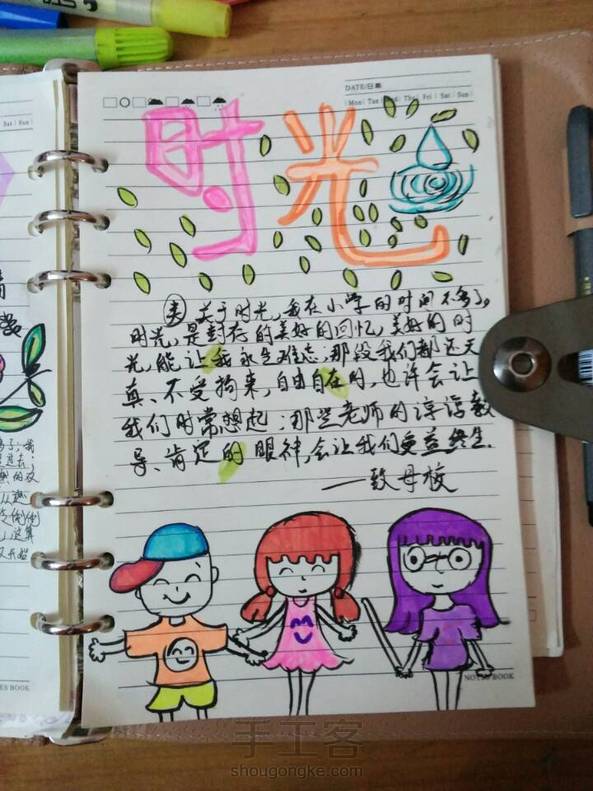 DATE/日期
Mon Tue Wed Thu Fri Sat Sun
时光
关于时光,我在小学的时间不多了。
时光,是封存的美好的回忆,美好的时
光,能让我永生难忘:那段我们都还天
真、不受拘束,自由自在的,也许会让
我们时常想起;那些老师的谆谆教
导、肯定的眼神,会让我们受益终生.
——致母校
NOTES BOOK
Sat Sun
ES BOOK
手工客
shougongke.com